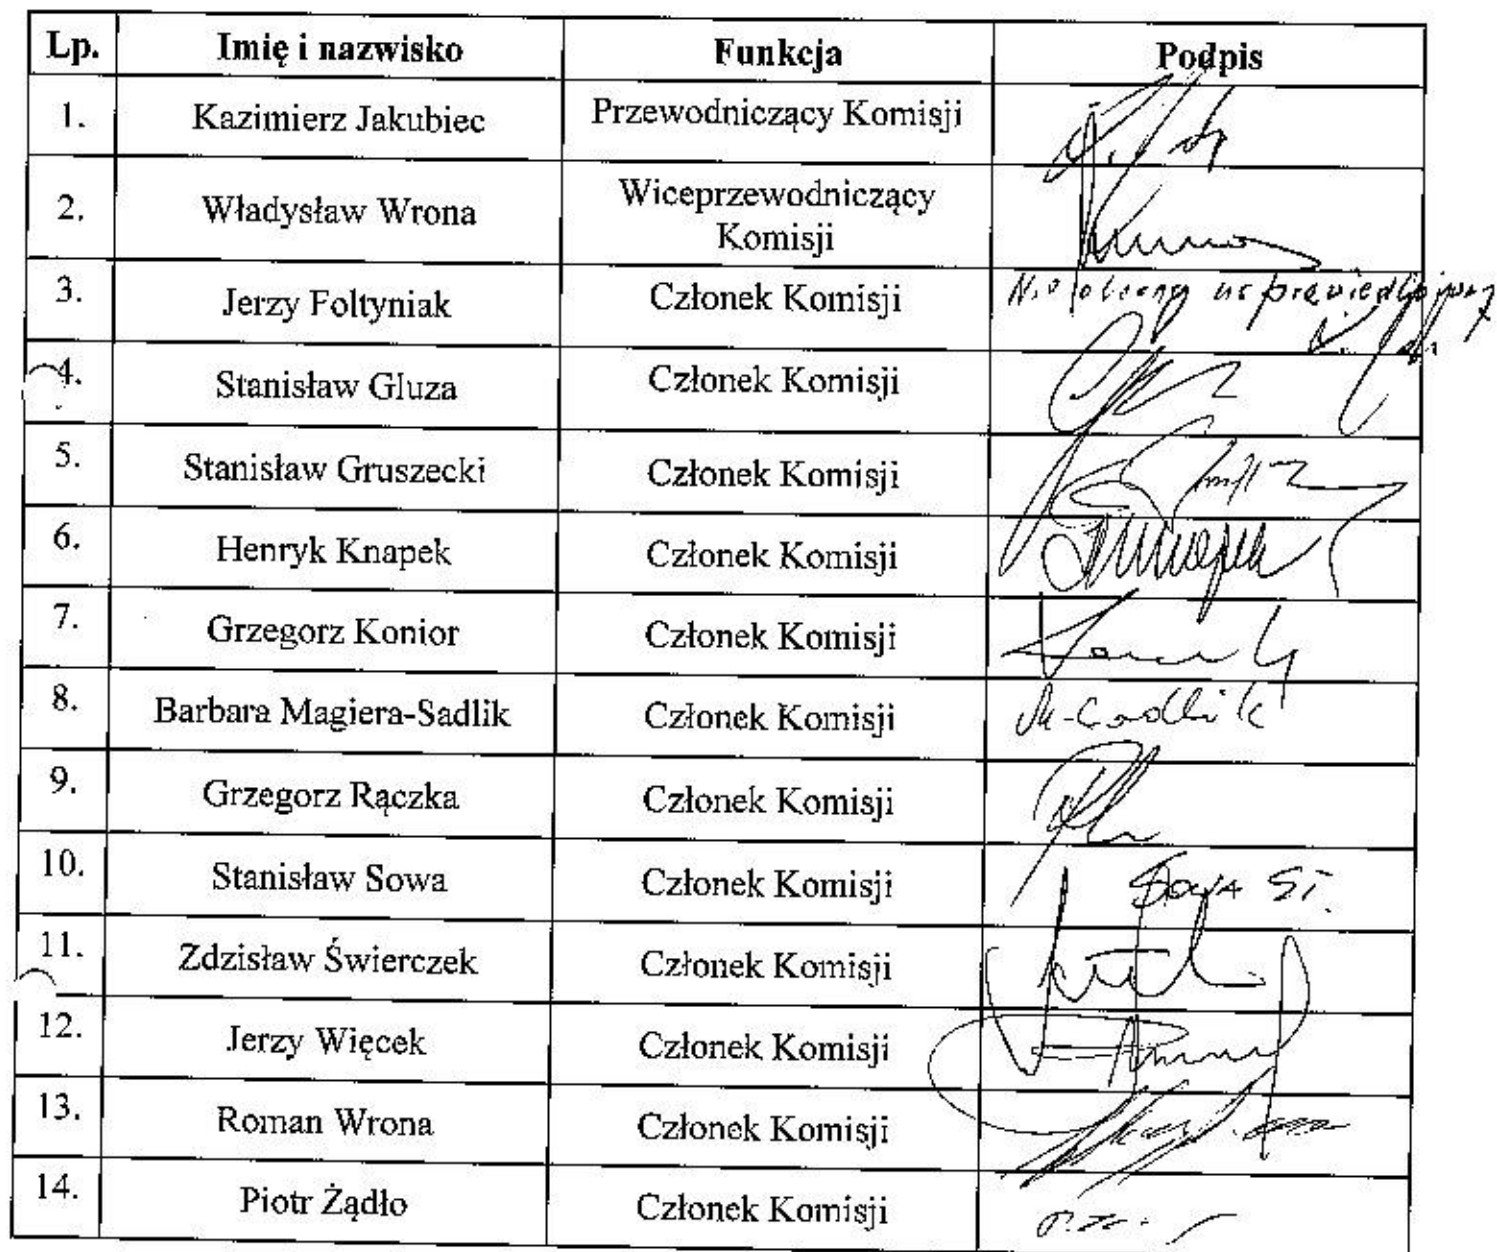 Lp. Imię i nazwisko Funkcja Podpis
1. Kazimierz Jakubiec Przewodniczący Komisji
2. Władysław Wrona Wiceprzewodniczący
Komisji
3. Jerzy Foltyniak Członek Komisji Nieobecny usprawiedliwiony
4. Stanisław Gluza Członek Komisji
5. Stanisław Gruszecki Członek Komisji
6. Henryk Knapek Członek Komisji
7. Grzegorz Konior Członek Komisji
8. Barbara Magiera-Sadlik Członek Komisji M-Sadlik
9. Grzegorz Rączka Członek Komisji
10. Stanisław Sowa Członek Komisji Sowa St.
11. Zdzisław Świerczek Członek Komisji
12. Jerzy Więcek Członek Komisji
13. Roman Wrona Członek Komisji
14. Piotr Żądło Członek Komisji